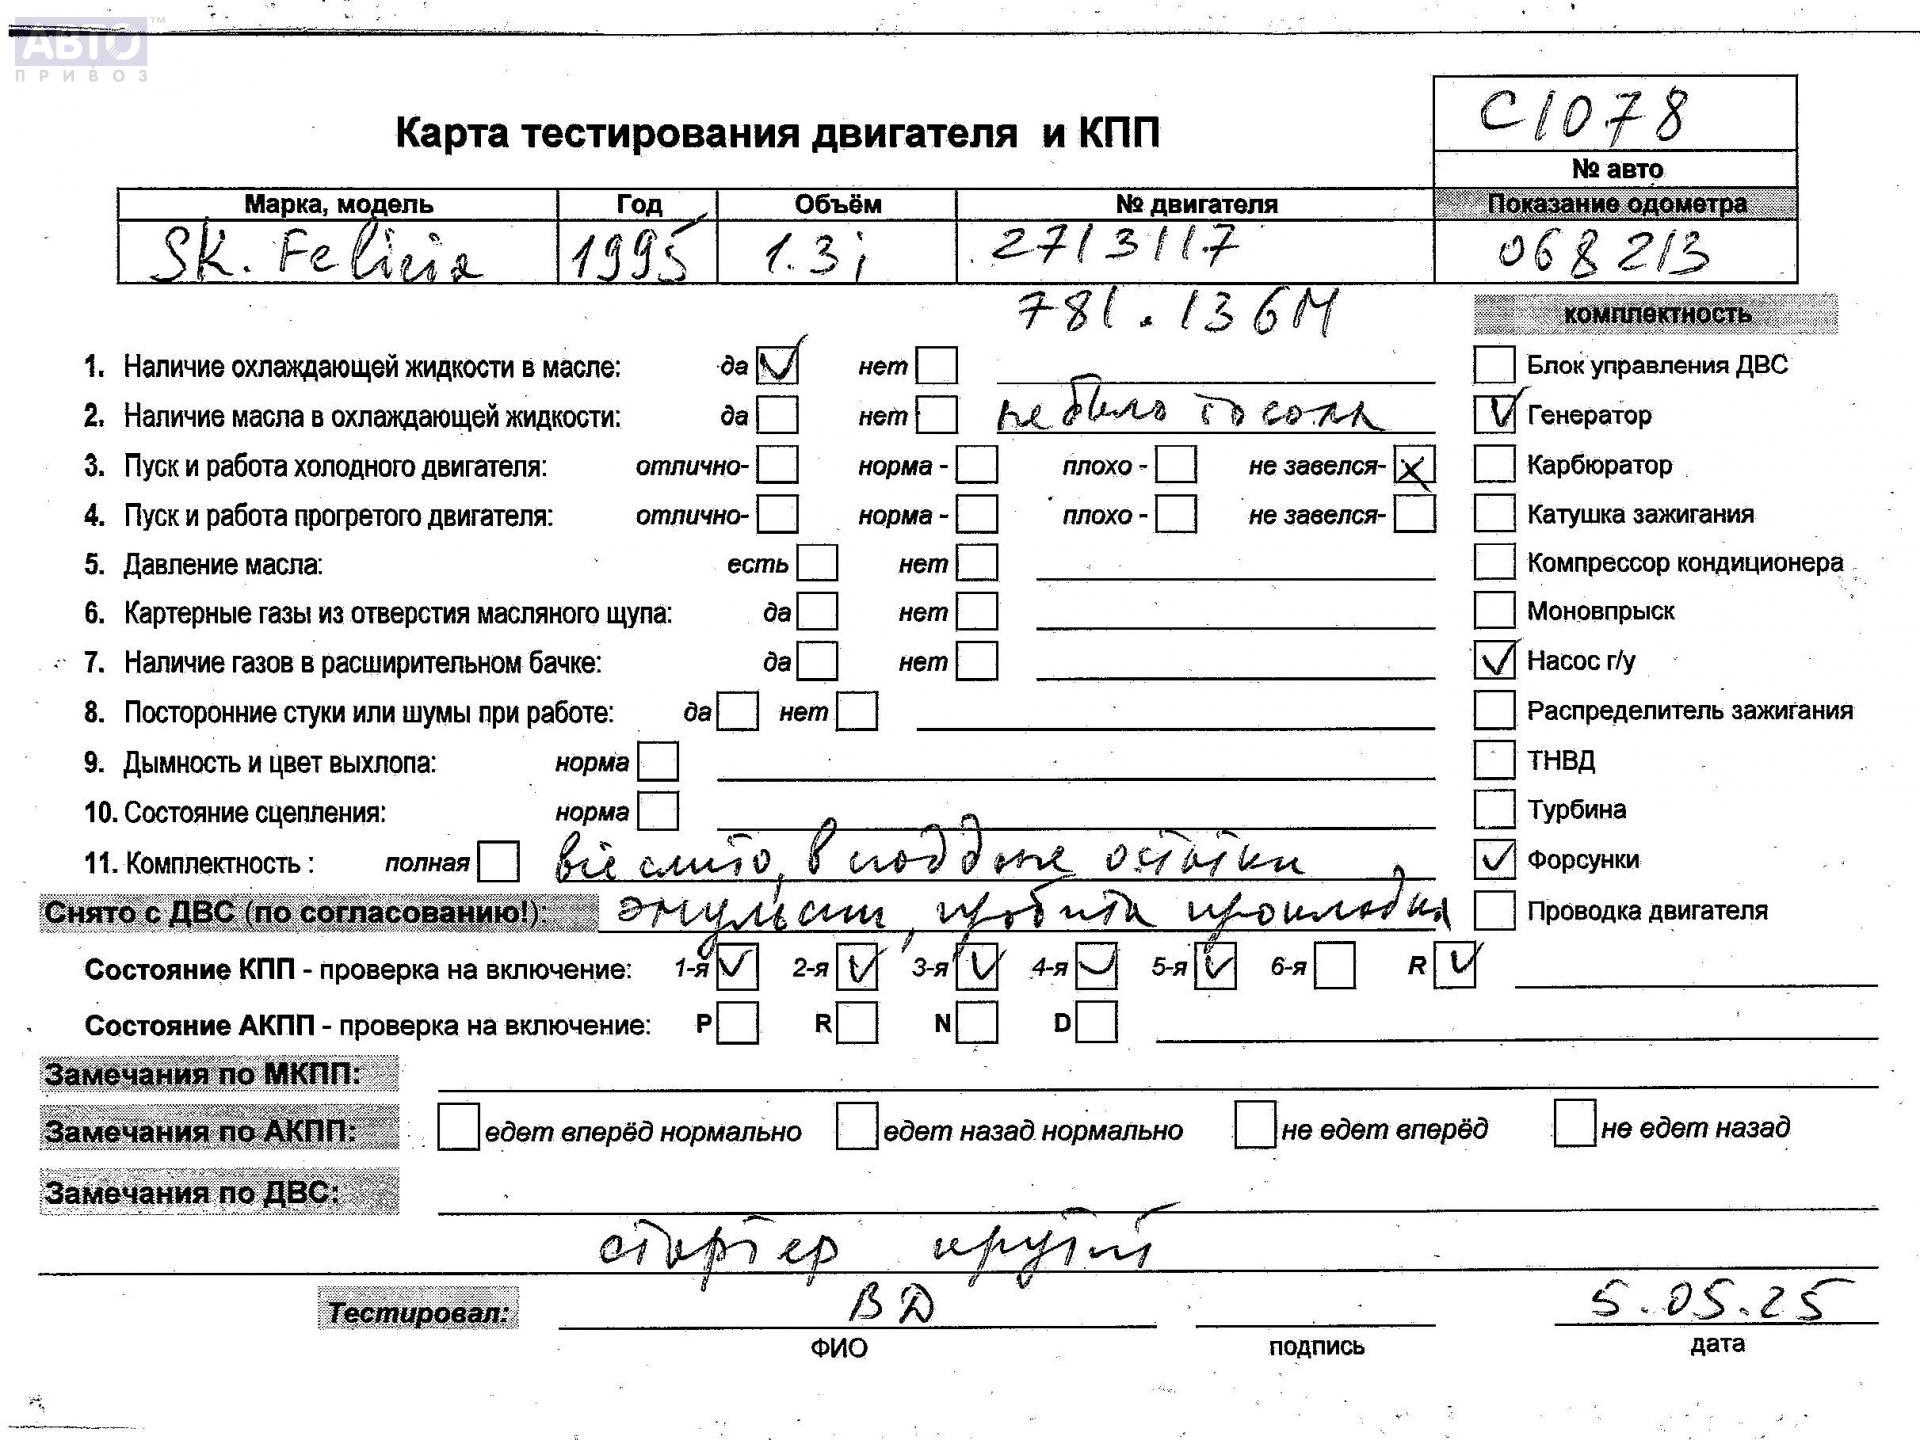 АВТО ™
ПРИВОЗ
С1078
Карта тестирования двигателя и КПП
№ авто
Марка, модель Год Объём № двигателя Показание одометра
SK. Felicia 1995 1.3i 2713117 068213
781.136М
комплектность
1. Наличие охлаждающей жидкости в масле: да нет
Блок управления ДВС
2. Наличие масла в охлаждающей жидкости: да нет не было тосола
Генератор
3. Пуск и работа холодного двигателя: отлично- норма - плохо - не завелся-
Карбюратор
4. Пуск и работа прогретого двигателя: отлично- норма - плохо - не завелся-
Катушка зажигания
5. Давление масла: есть нет
Компрессор кондиционера
6. Картерные газы из отверстия масляного щупа: да нет
Моновпрыск
7. Наличие газов в расширительном бачке: да нет
Насос г/у
8. Посторонние стуки или шумы при работе: да нет
Распределитель зажигания
9. Дымность и цвет выхлопа: норма
ТНВД
10. Состояние сцепления: норма
Турбина
11. Комплектность : полная всё слито, в поддоне остатки
Форсунки
Снято с ДВС (по согласованию!): эмульсии, пробита прокладка
Проводка двигателя
Состояние КПП - проверка на включение: 1-я 2-я 3-я 4-я 5-я 6-я R
Состояние АКПП - проверка на включение: P R N D
Замечания по МКПП:
Замечания по АКПП: едет вперёд нормально едет назад нормально не едет вперёд не едет назад
Замечания по ДВС:
стартер крутит
Тестировал: ВД 5.05.25
ФИО подпись дата